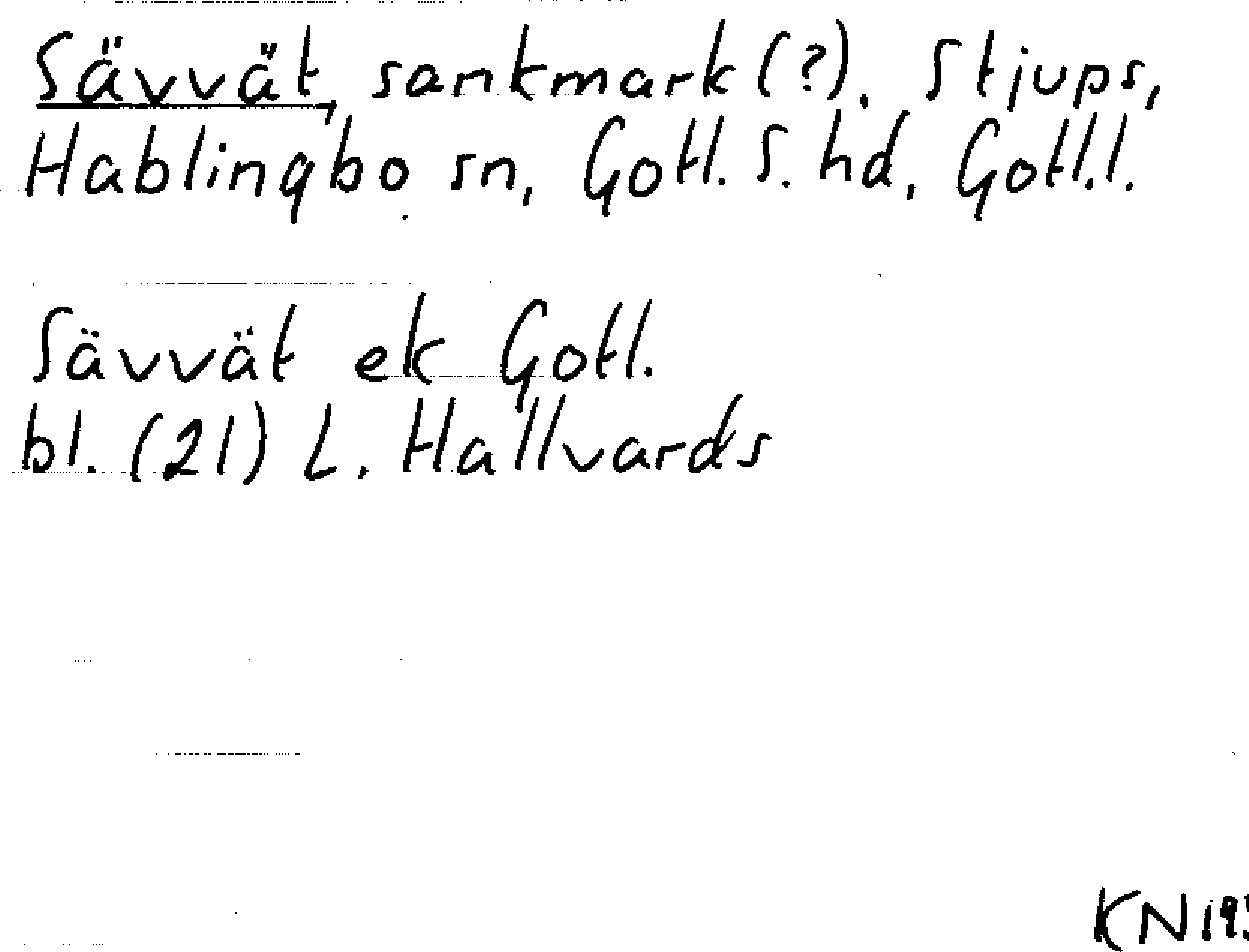 Sävvät, sankmark(?). Stjups,
Hablingbo sn, Gotl. S. hd, Gotl.l.
Sävvät ek Gotl.
bl. (21) L. Hallvards
KN